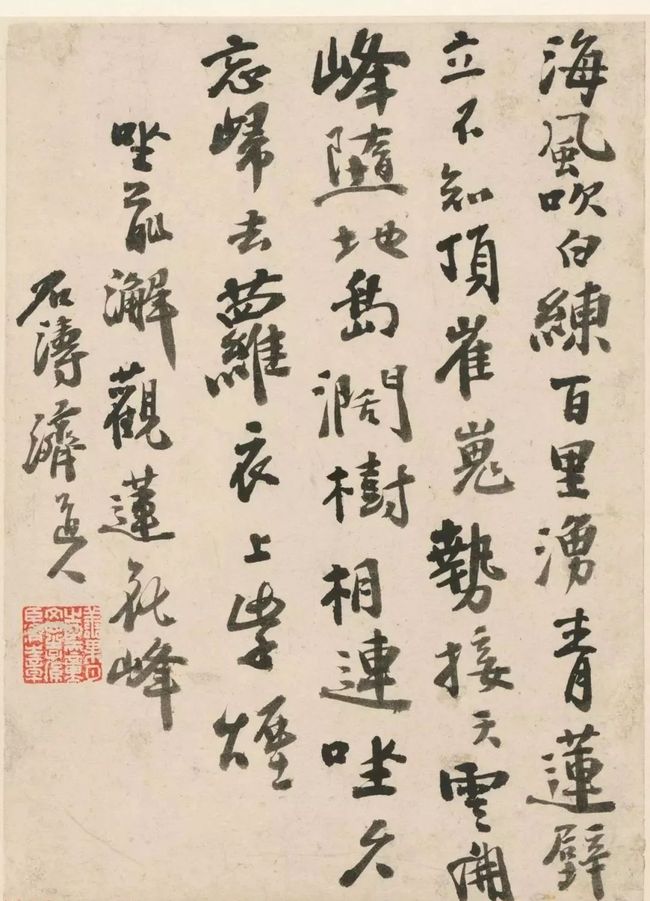 海風吹白練百里湧青蓮壁
立不知頂崔嵬勢接天雲開
峰隨地島濶樹相連坐久
忘歸去蘿衣上紫煙
坐前澥觀蓮花峰
石濤濟道人